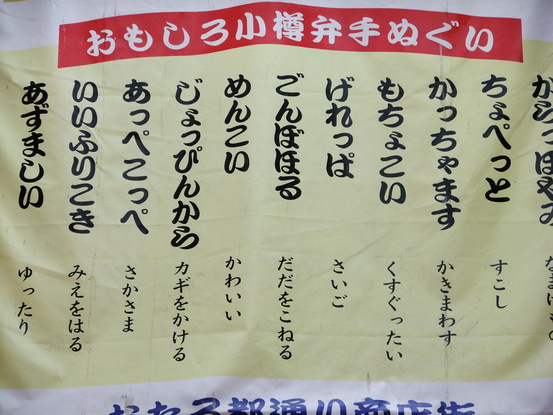 おもしろ小樽弁手ぬぐい
ちょぺっと
すこし
かっちゃます
かきまわす
もちょこい
くすぐったい
げれっぱ
さいご
ごんぼほる
だだをこねる
めんこい
かわいい
じょっぴんから
カギをかける
あっぺこっぺ
さかさま
いいふりこき
みえをはる
あずましい
ゆったり
おたる都通り商店街